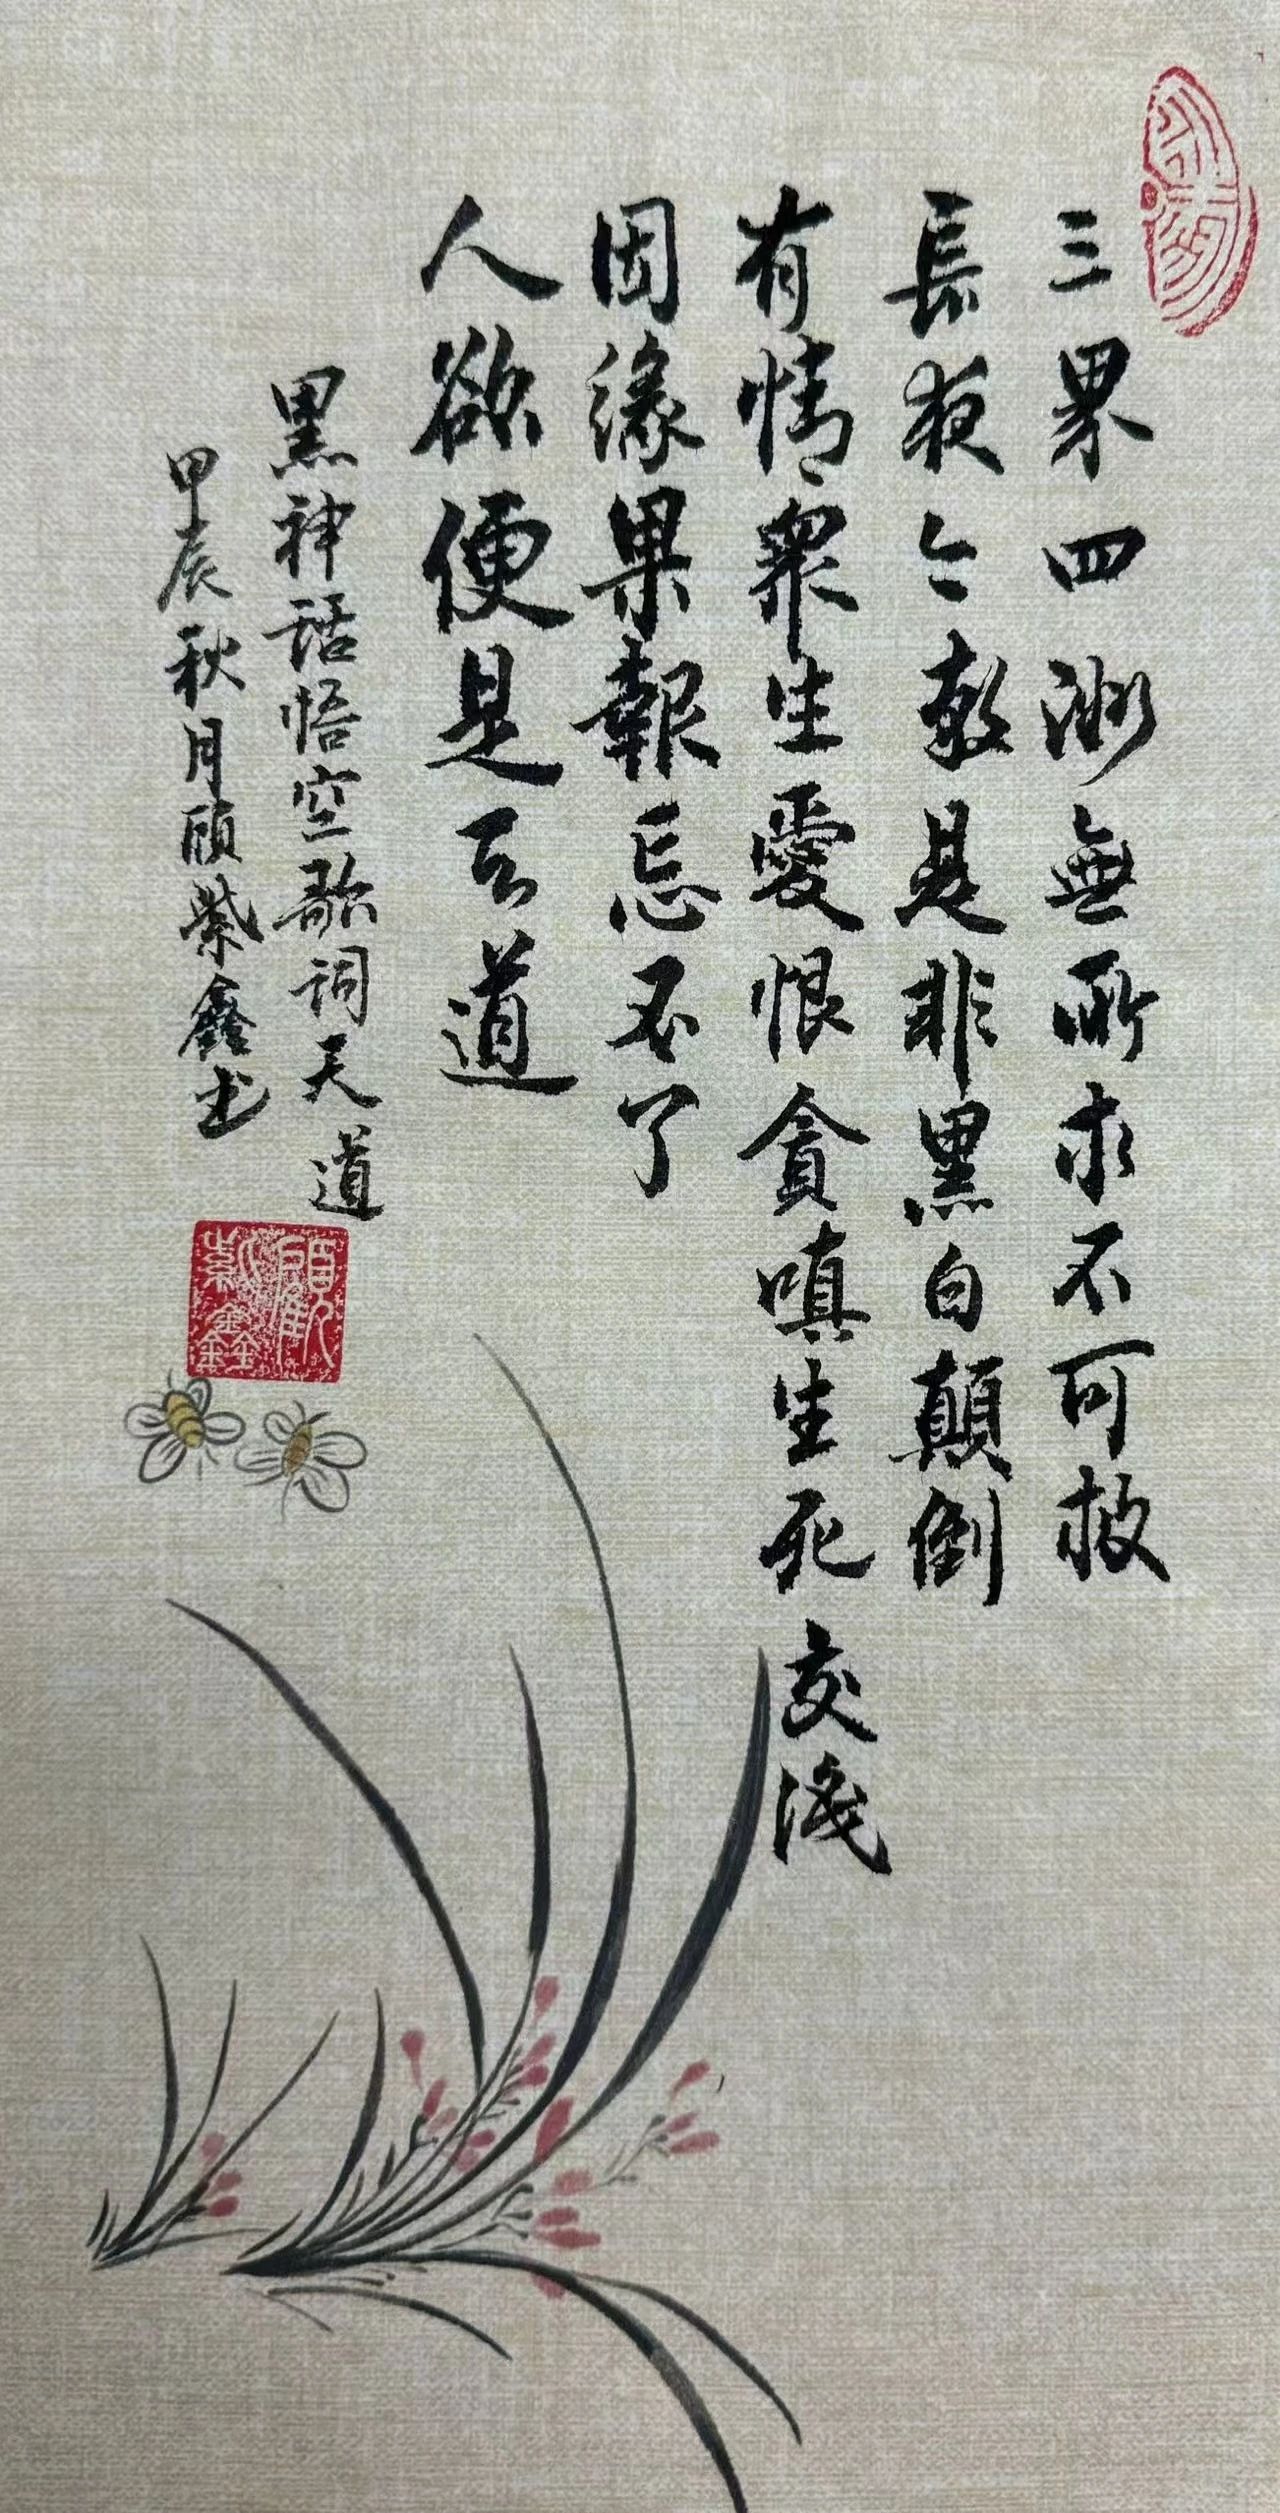 三界四洲無所求不可救
長夜亡亡教是非黑白顛倒
有情眾生愛恨貪嗔生死交淺
因緣果報忘不了
人欲便是天道
黑神話悟空歌詞天道
甲辰秋月頋紫鑫书
顧紫鑫